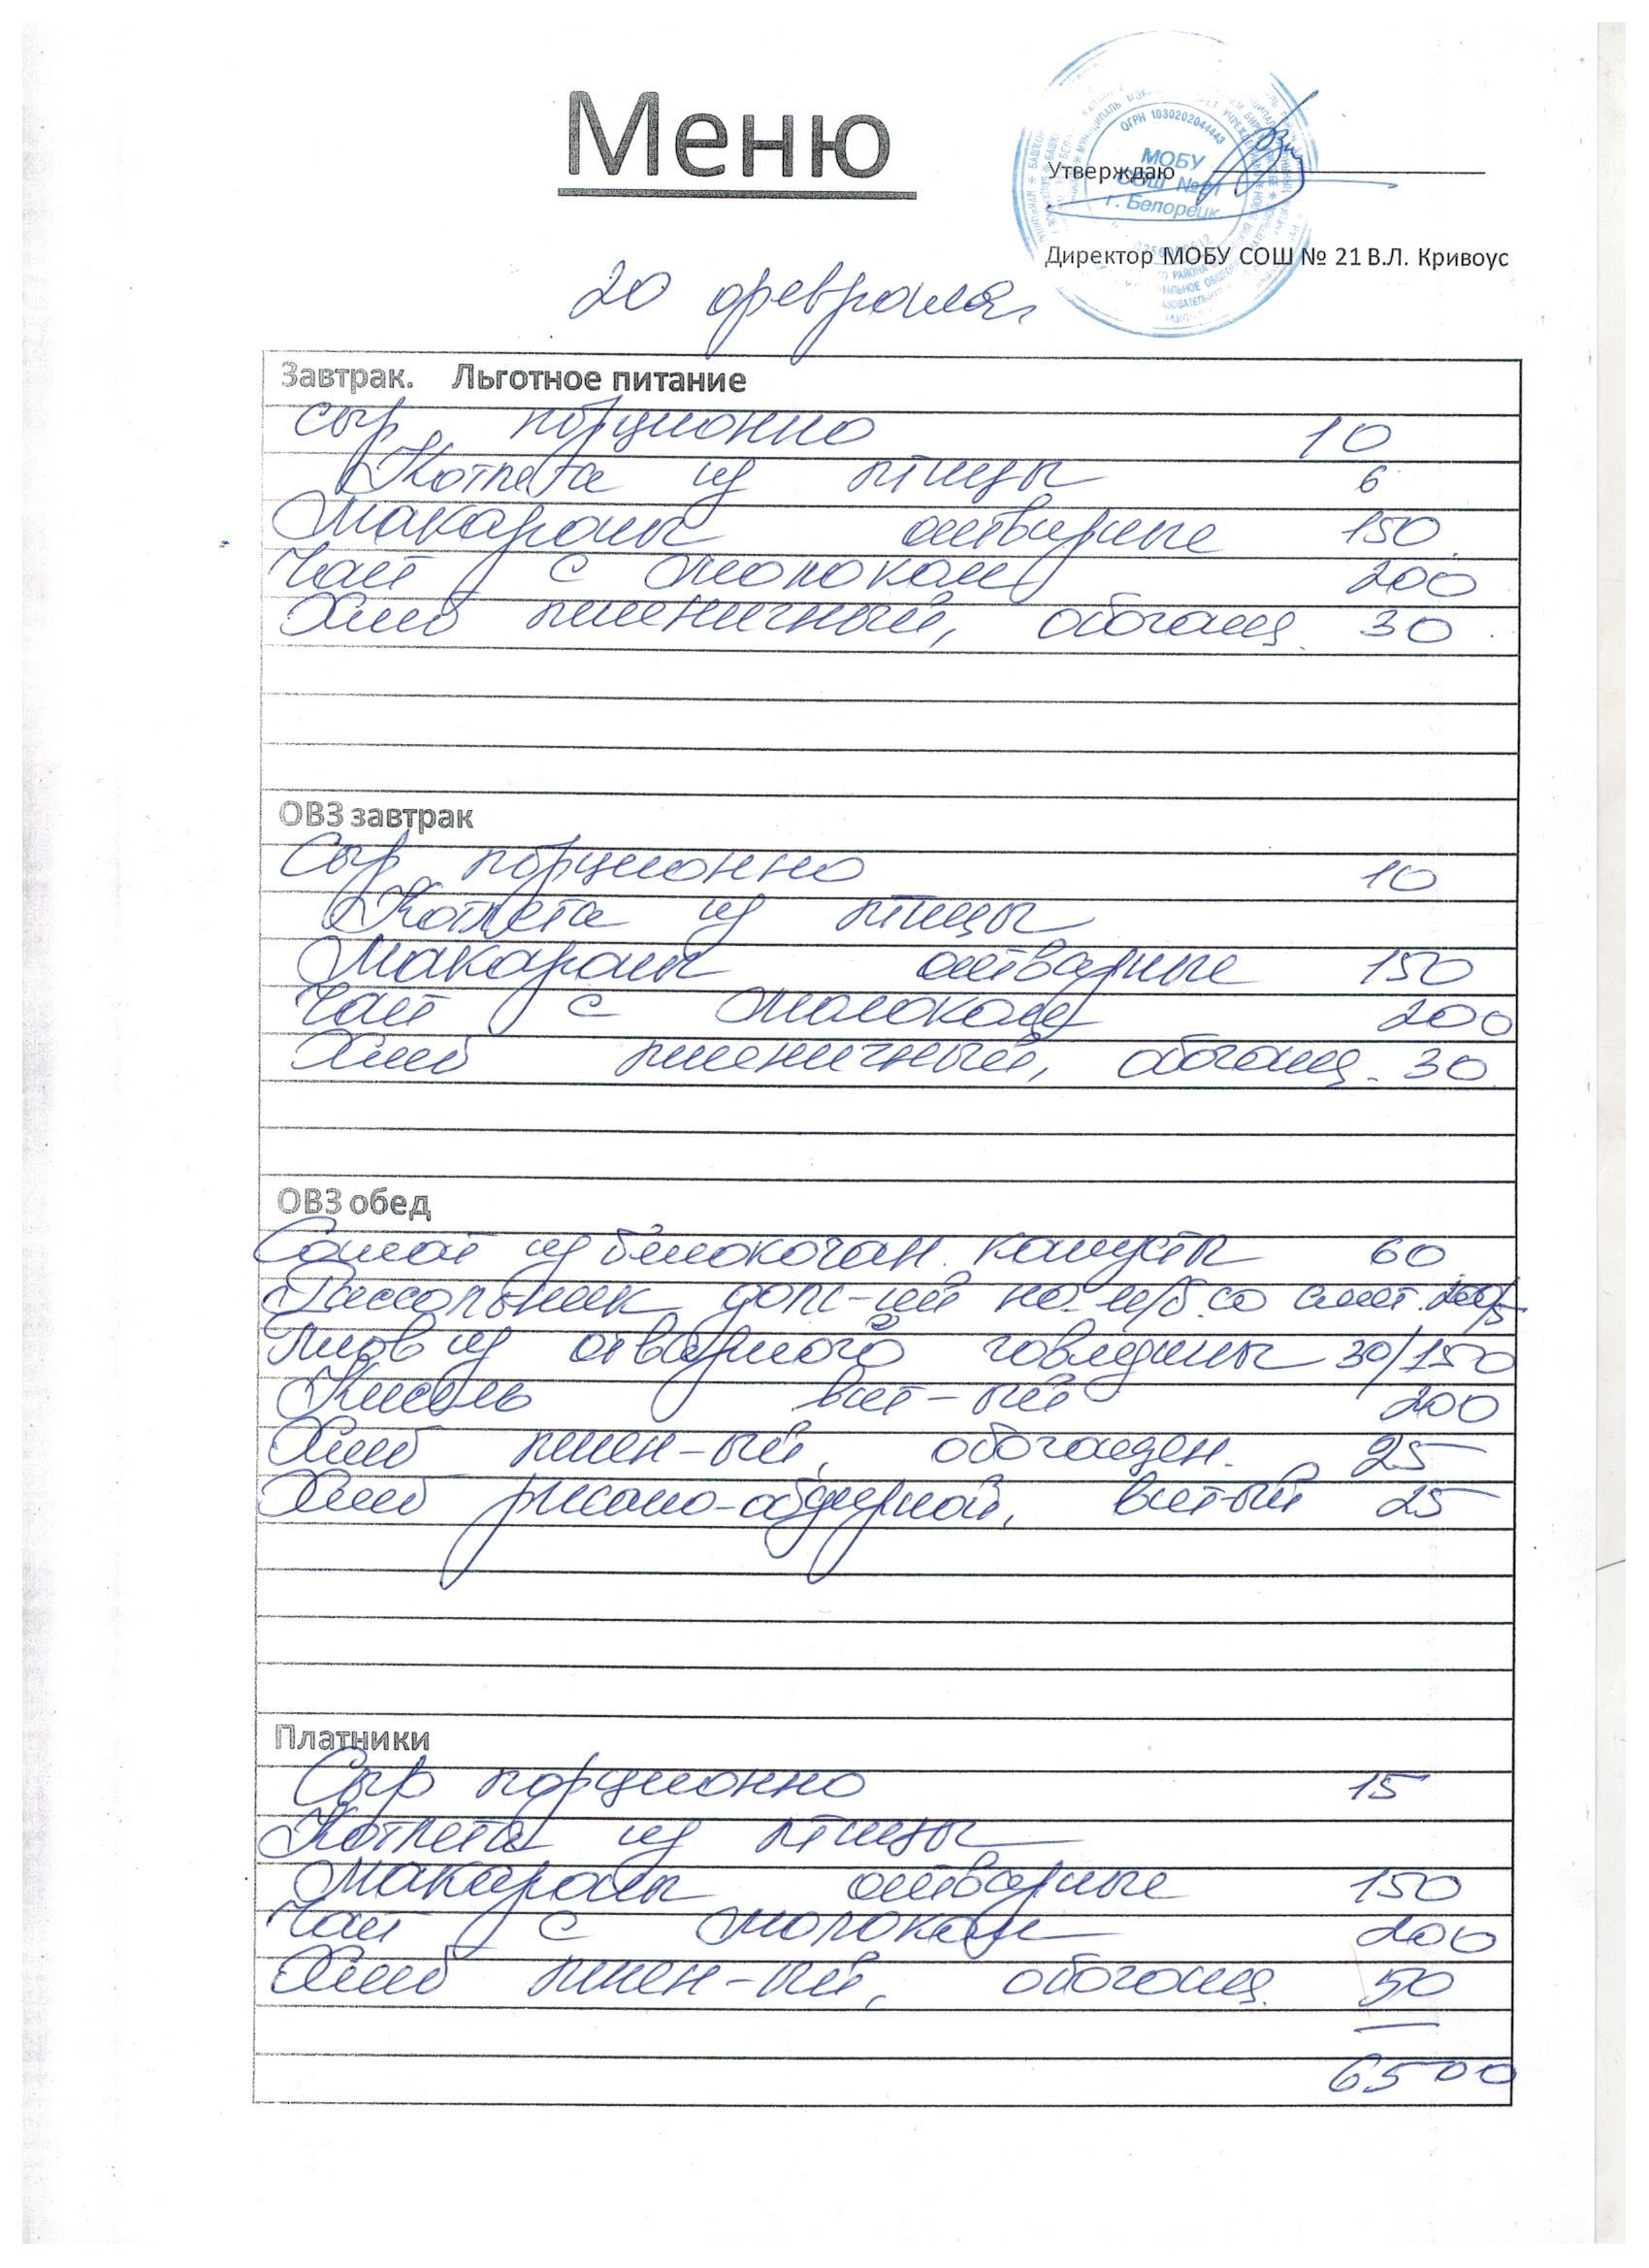 Меню
ОГРН 1030202044443
МОБУ
СОШ №21
г. Белорецк
Утверждаю
Директор МОБУ СОШ № 21 В.Л. Кривоус
20 февраля
Завтрак. Льготное питание
Сыр порционно 10
Котлета из птицы 6
Макароны отварные 150
Чай с молоком 200
Хлеб пшеничный, обогащ. 30
ОВЗ завтрак
Сыр порционно 10
Котлета из птицы
Макароны отварные 150
Чай с молоком 200
Хлеб пшеничный, обогащ. 30
ОВЗ обед
Салат из белокочан. капусты 60
Рассольник на м/б со смет. 200/5
Плов из отварного говядины 30/150
Кисель вит-ый 200
Хлеб пшен-ый, обогащен. 25
Хлеб ржано-обдирной, вит-ый 25
Платники
Сыр порционно 15
Котлета из птицы
Макароны отварные 150
Чай с молоком 200
Хлеб пшен-ый, обогащ. 50
6500